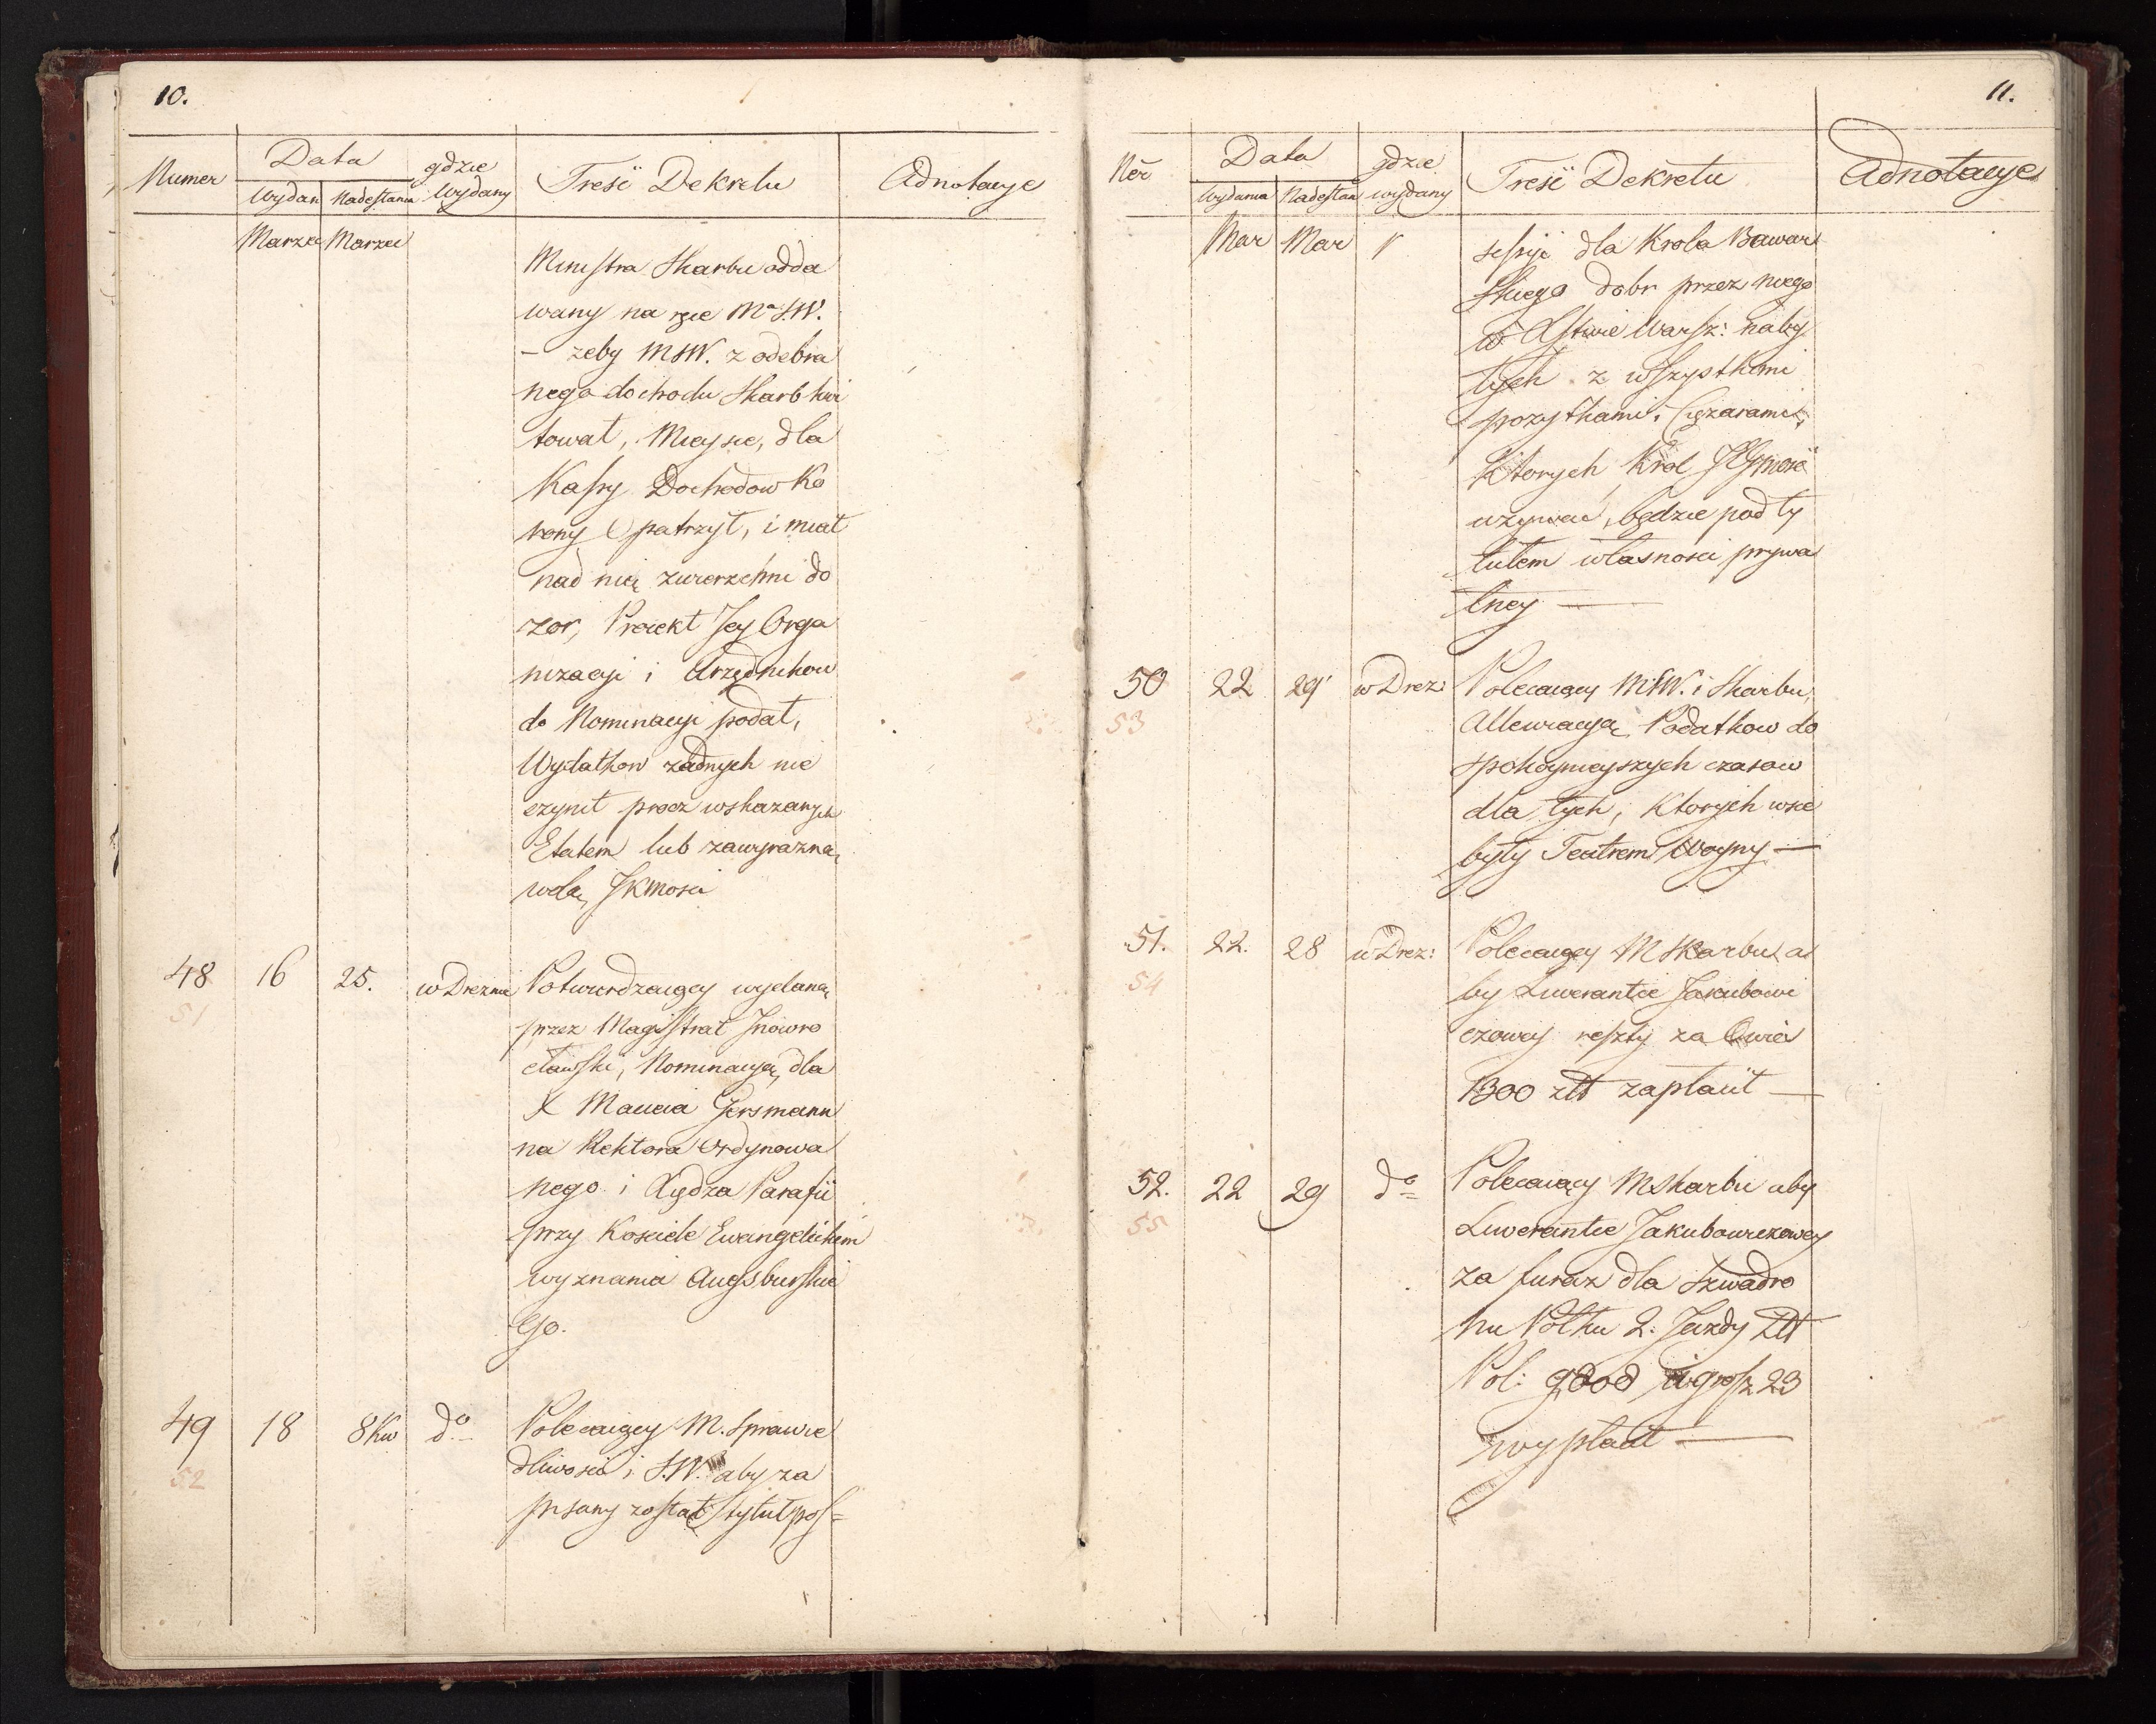 10.
Numer Data gdzie wydany Treść Dekretu Adnotacye
Wydan Nadesłania
Marzec Marzec
Ministra Skarbu odda
wany na rzec Mª S.W.
– żeby MSW. z odebra
nego dochodu Skarb kwi
tował, Mieysce, dla
Kassy Dochodow Ko
rony Opatrzył, i miał
nad nią zwierzchni do
zor, Proiekt Jey Orga
nizacyi i Urzędnikow
do Nominacyi podał,
Wydatkow żadnych nie
czynił procz wskazanych
Etatem lub zawyraźną
wolą JKmosci
48 16 25. w Dreznie Potwierdzaiący wydaną
51
przez Magistrat Inowro
cławski, Nominacyą dla
X Macieia Gersmann
na Rektora Ordynowa
nego i Xiędza Parafii
przy Kosciele Ewangelickim
wyznania Augsburskie
Go.
49 18 8 Kw do Polecaiący M. Sprawie
52
dliwosci i S.W. aby za
pisany został tytuł pos=
11.
Nēr Data gdzie wydany Treść Dekretu Adnotacye
Wydania Nadesłan
Mar Mar
sessyi dla Krola Bawar
skiego dobr przez niego
w Xstwie Warsz: naby
tych z wszystkimi
pozytkami, Ciężarami,
Ktorych Krol JGmość
uzywać, będzie pod ty
tułem własnosci prywa
tney —
50 22 29 w Drez: Polecaiący MSW. i Skarbu,
53
Allewiacyą Podatkow do
spokoynieyszych czasow
dla tych, Ktorych wsie
były Teatrem Woyny —
51. 22. 28 w Drez: Polecaiący M Skarbu a
54
by Liwerantce Jakubowi
czowey reszty za Owies
1300 złł zapłacił —
52. 22 29 do Polecaiący MSkarbu aby
55
Liwerantce Jakubowiczowey
za furaz dla Szwadro
nu Półku 2. Jazdy Złł
Pol: 9000 i grosz 23
wypłacił —